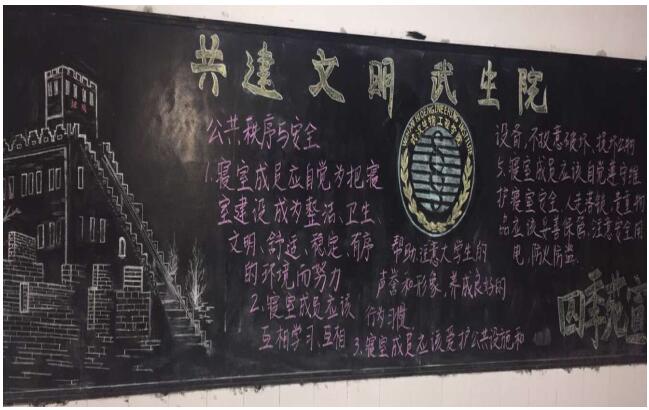 共建文明武生院
公共秩序与安全
1.寝室成员应自觉为把寝
室建设成为整洁、卫生、
文明、舒适、稳定、有序
的环境而努力
2.寝室成员应该
互相学习、互相
帮助注意大学生的
声誉和形象,养成良好的
行为习惯
3.寝室成员应该爱护公共设施和
设备,不故意破坏、损坏公物
5.寝室成员应该自觉遵守维
护寝室安全,人走落锁,贵重物
品应该妥善保管,注意安全用
电,防火防盗.
四季苑宣